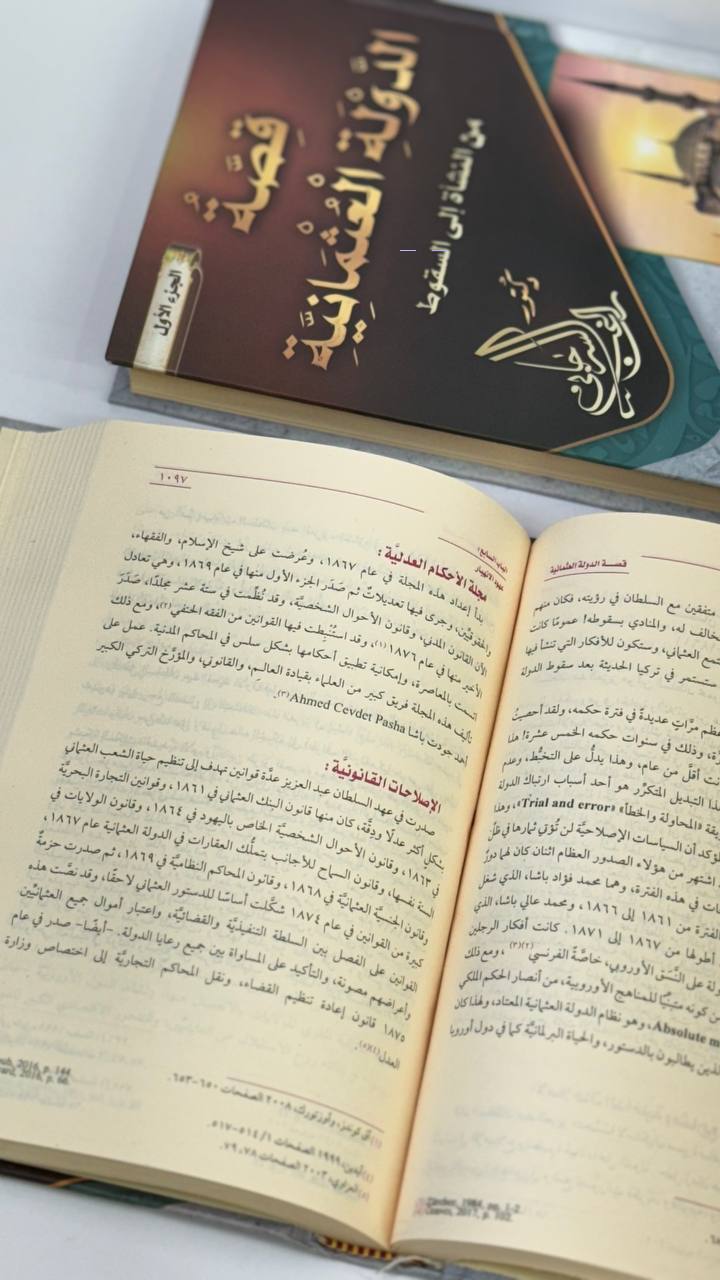 قِصَّةُ
الدَّوْلَةِ الْعُثْمَانِيَّةِ
مِنَ النشأة إلى السقوط
دكتور
راغب السرجاني
الجزء الأول
قصة الدولة العثمانية
متفقين مع السلطان في رؤيته، فكان منهم
خالف له، والمنادي بسقوطه! عمومًا كانت
تمع العثماني، وستكون للأفكار التي تنشأ فيها
ستستمر في تركيا الحديثة بعد سقوط الدولة
ظم مرَّاتٍ عديدةً في فترة حكمه، ولقد أحصيتُ
ة، وذلك في سنوات حكمه الخمس عشرة! هذا
نت أقلَّ من عام، وهذا يدلُّ على التخبُّط، وعدم
ذا التبديل المتكرِّر هو أحد أسباب ارتباك الدولة
يقة «المحاولة والخطأ» «Trial and error»، وهذا
ؤكد أن السياسات الإصلاحيَّة لن تُؤتي ثمارها في ظلِّ
اشتهر من هؤلاء الصدور العظام اثنان كان لهما دورٌ
ات في هذه الفترة، وهما محمد فؤاد باشا، الذي شغل
الفترة من ١٨٦١ إلى ١٨٦٦، ومحمد عالي باشا، الذي
أطولها من ١٨٦٧ إلى ١٨٧١. كانت أفكار الرجلين
ولة على النَّسق الأوروبي، خاصَّةً الفرنسي(٢)(٣)، ومع ذلك
ن كونه متبنِّيًا للمناهج الأوروبية، من أنصار الحكم الملكي
Absolute m، وهو نظام الدولة العثمانية المعتاد، ولهذا كان
لذين يطالبون بالدستور، والحياة البرلمانيَّة كما في دول أوروبا
١٠٩٧
الباب السابع:
مجلة الأحكام العدليَّة:
بدأ إعداد هذه المجلة في عام ١٨٦٧، وعُرضت على شيخ الإسلام، والفقهاء،
والحقوقيِّين، وجرى فيها تعديلاتٌ ثم صَدَر الجزء الأول منها في عام ١٨٦٩، وهي تعادل
الآن القانون المدني، وقانون الأحوال الشخصيَّة، وقد نُظِّمت في ستة عشر مجلدًا، صَدَرَ
الأخير منها في عام ١٨٧٦(١)، وقد استُنْبِطت فيها القوانين من الفقه الحنفي(٢)، ومع ذلك
اتسمت بالمعاصرة، وإمكانية تطبيق أحكامها بشكل سلس في المحاكم المدنية. عمل على
تأليف هذه المجلة فريق كبير من العلماء بقيادة العالِم، والقانوني، والمؤرِّخ التركي الكبير
أحمد جودت باشا Ahmed Cevdet Pasha(٣).
الإصلاحات القانونيَّة:
صدرت في عهد السلطان عبد العزيز عدَّة قوانين تهدف إلى تنظيم حياة الشعب العثماني
بشكلٍ أكثر عدلًا ودِقَّة، كان منها قانون البنك العثماني في ١٨٦١، وقوانين التجارة البحريَّة
في ١٨٦٣، وقانون الأحوال الشخصيَّة الخاص باليهود في ١٨٦٤، وقانون الولايات في
السنة نفسها، وقانون السماح للأجانب بتملُّك العقارات في الدولة العثمانية عام ١٨٦٧،
وقانون الجنسيَّة العثمانيَّة في ١٨٦٨، وقانون المحاكم النظاميَّة في ١٨٦٩، ثم صدرت حزمةٌ
كبيرة من القوانين في عام ١٨٧٤ شكَّلت أساسًا للدستور العثماني لاحقًا، وقد نصَّت هذه
القوانين على الفصل بين السلطة التنفيذيَّة والقضائيَّة، واعتبار أموال جميع العثمانيِّين
وأعراضهم مصونة، والتأكيد على المساواة بين جميع رعايا الدولة. -أيضًا- صدر في عام
١٨٧٥ قانون إعادة تنظيم القضاء، ونقل المحاكم التجاريَّة إلى اختصاص وزارة
العدل(٤)(٥).
(١) آق كوندز، وأوزتورك، ٢٠٠٨ الصفحات ٦٥٠-٦٥٣.
(٤) أيدين، ١٩٩٩ الصفحات ١/ ٥١٤-٥١٧.
(٥) العزاوي، ٢٠٠٣ الصفحات ٧٨، ٧٩.
2016, p. 144.